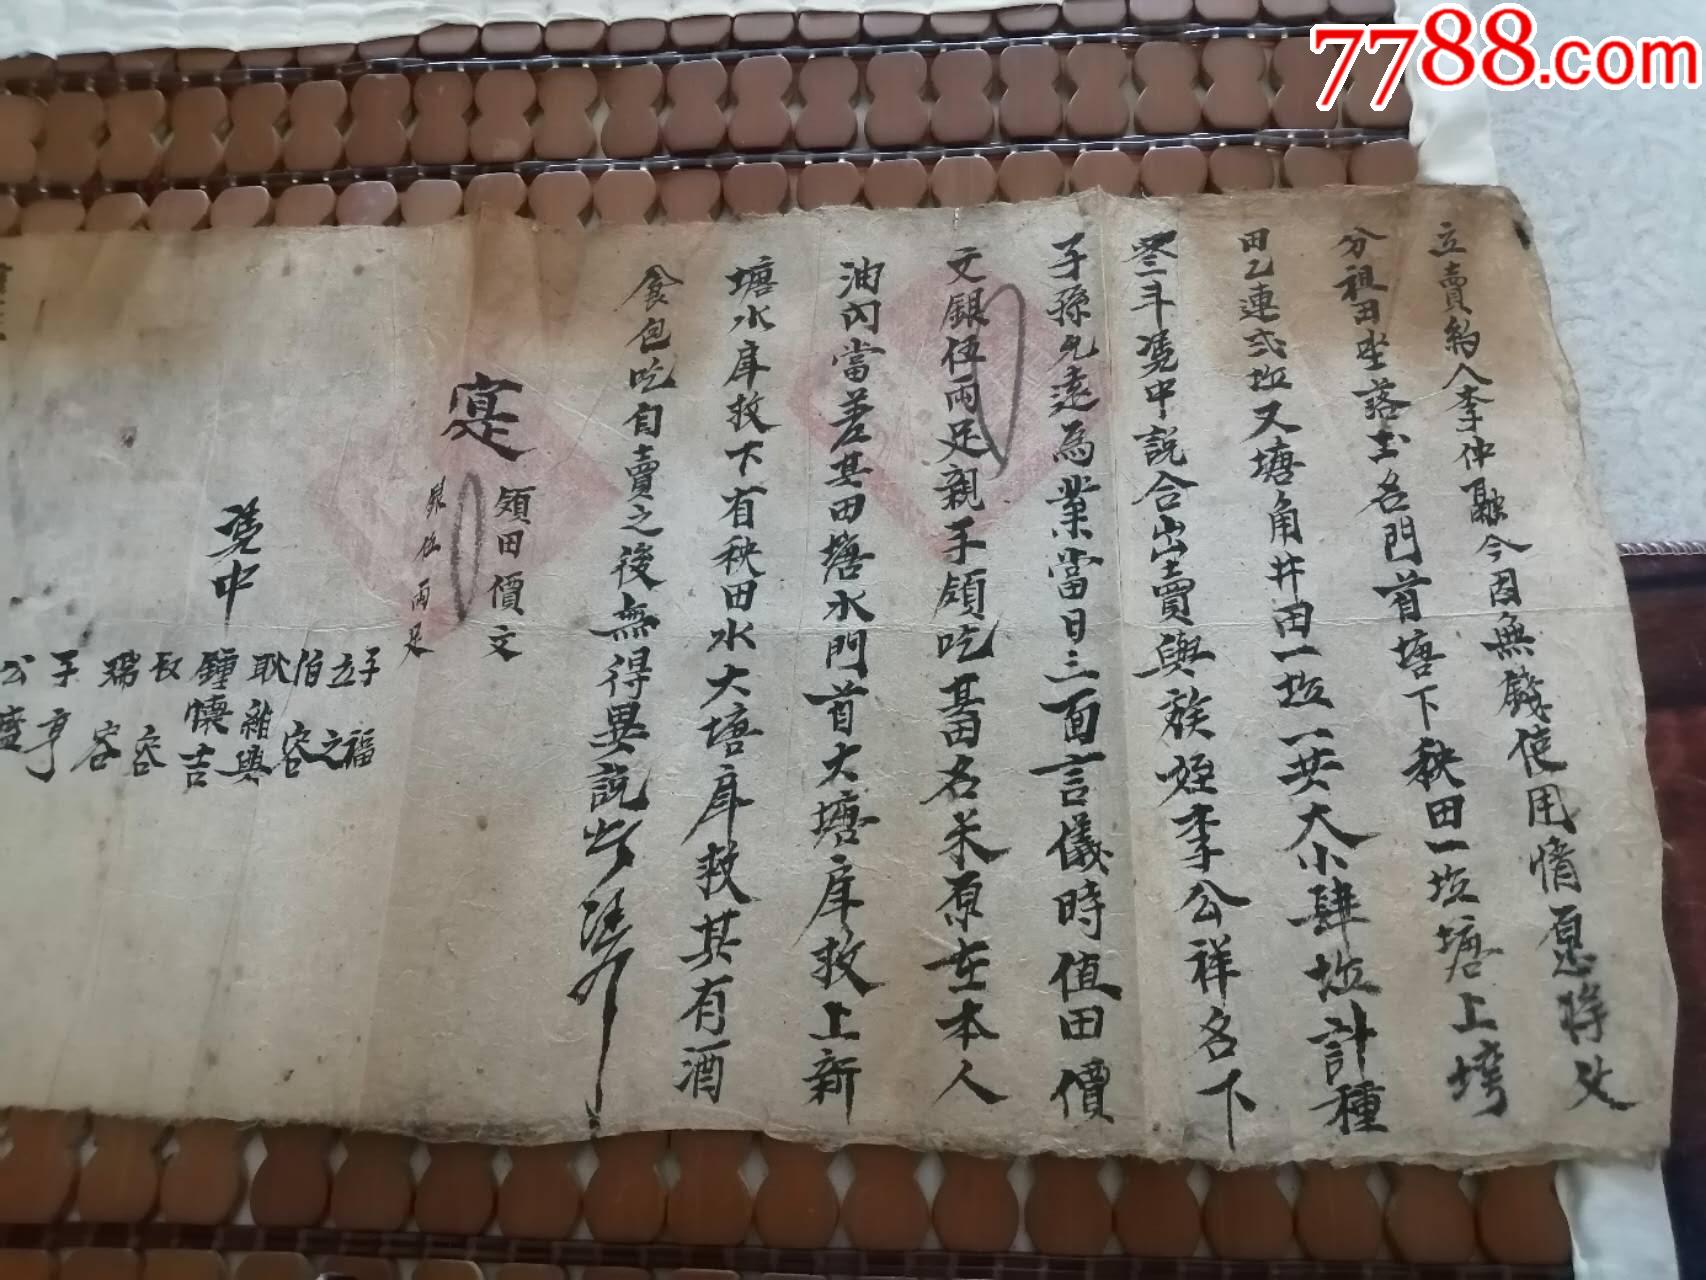 7788.com
立賣約人李仲融今因無錢使用情愿將父
分祖田坐落土名門首塘下秧田一坵塘上塆
田乙連弍坵又塘角井田一坵一共大小肆坵計種
叁斗凴中說合出賣與族姪李公祥名下
子孫允遠為業當日三面言儀時值田價
文銀伍兩足親手領吃其田名米原在本人
油內當差其田塘水門首大塘庠救上新
塘水庠救下有秧田水大塘庠救其有酒
食包吃自賣之後無得異說此凴
寔 領田價文
銀伍兩足
凴中
子福
立之
伯容
耿維興
鍾懐吉
長容
瑞容
子亨
公